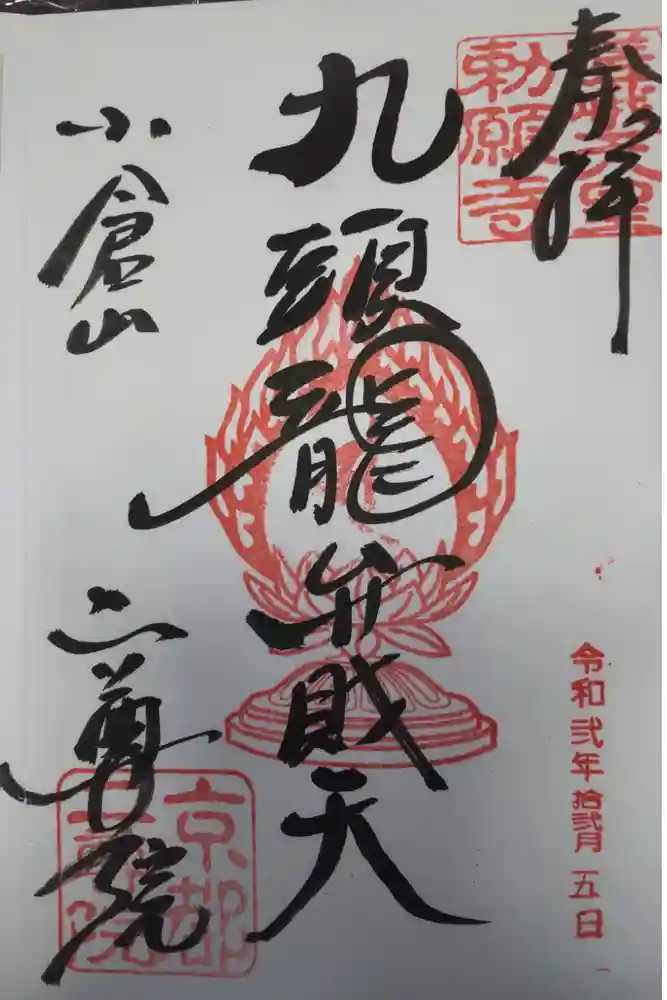 奉拝
勅願寺
九頭龍弁財天
令和弐年拾弐月五日
小倉山
二尊院
京都
二尊院